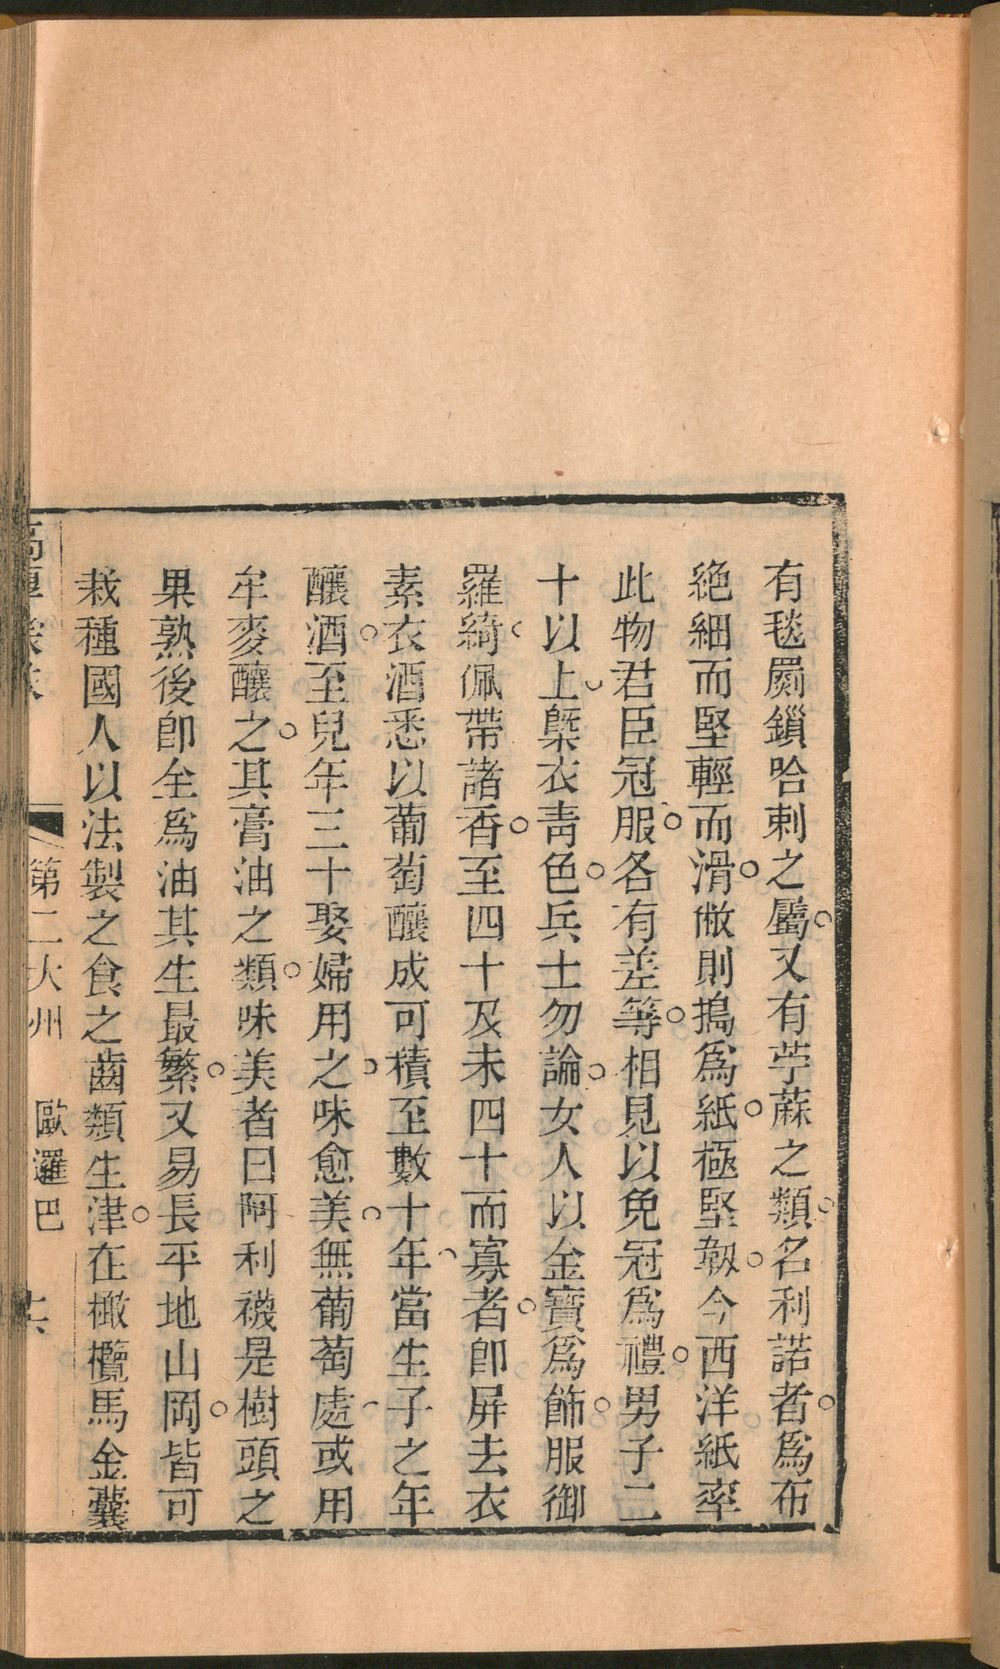 有毯罽鎖哈剌之屬又有苧蔴之類名利諾者爲布
絶細而堅輕而滑敝則搗爲紙極堅韌今西洋紙率
此物君臣冠服各有差等相見以免冠爲禮男子二
十以上槩衣靑色兵士勿論女人以金寶爲飾服御
羅綺佩帶諸香至四十及未四十而寡者卽屏去衣
素衣酒悉以葡萄釀成可積至數十年當生子之年
釀酒至兒年三十娶婦用之味愈美無葡萄處或用
牟麥釀之其膏油之類味美者曰阿利襪是樹頭之
果熟後卽全爲油其生最繁又易長平地山岡皆可
栽種國人以法製之食之齒類生津在橄欖馬金囊
第二大州 歐邏巴